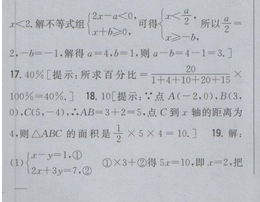 x<2. 解不等式组{2x-a<0, x+b≥0, 可得{x<a/2, x≥-b, 所以a/2=
2,-b=-1,解得 a=4,b=1,则 a-b=4-1=3.]
17. 40%[提示:所求百分比=20/(1+4+10+20+15)×
100%=40%.] 18. 10[提示:∵点 A(-2,0),B(3,
0),C(5,-4),∴AB=3+2=5,点 C 到 x 轴的距离为
4,则△ABC 的面积是1/2×5×4=10.] 19. 解:
(1){x-y=1,① 2x+3y=7,② ①×3+②得 5x=10,即 x=2,把